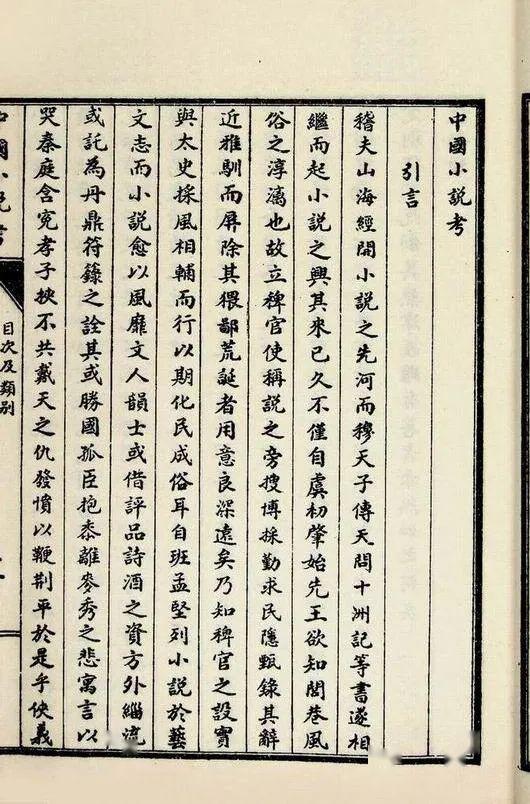 中國小説考
引言
稽夫山海經開小説之先河而穆天子傳天問十洲記等書遂相
繼而起小説之興其來已久不僅自虞初肇始先王欲知閭巷風
俗之淳漓也故立稗官使稱説之旁搜博採勤求民隱甄錄其辭
近雅馴而屏除其猥鄙荒誕者用意良深遠矣乃知稗官之設實
與太史採風相輔而行以期化民成俗耳自班孟堅列小説於藝
文志而小説愈以風靡文人韻士或借評品詩酒之資方外緇流
或託為丹鼎符籙之詮其或勝國孤臣抱黍離麥秀之悲寓言以
哭秦庭含寃孝子挾不共戴天之仇發憤以鞭荆平於是乎俠義
中國小說考
目次及類別